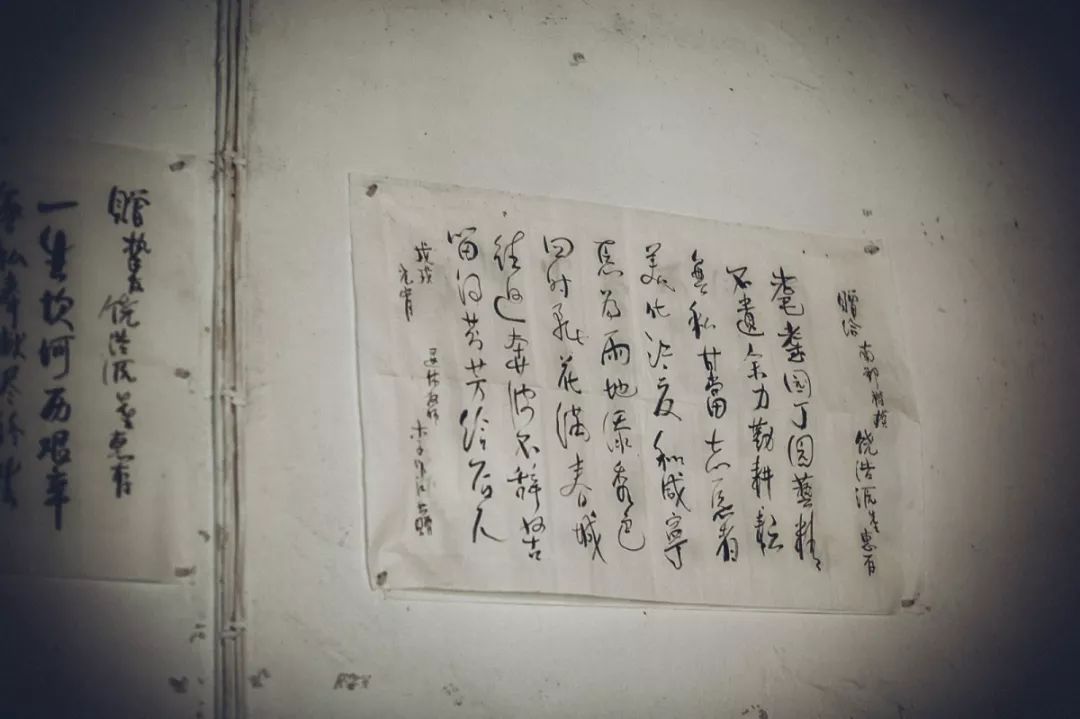 赠给 南部劳模 饶浩沅先生惠存
耄耋园丁园艺精
不遗余力勤耕耘
无私甘当志愿者
美化泠友和咸宁
愿为两地添春色
四时飞花满春城
往返奔波不辞劳
留得芬芳给后人
元宵
李 赠
赠挚友饶浩沅 惠存
一生坎坷历艰辛
无私奉献尽终生